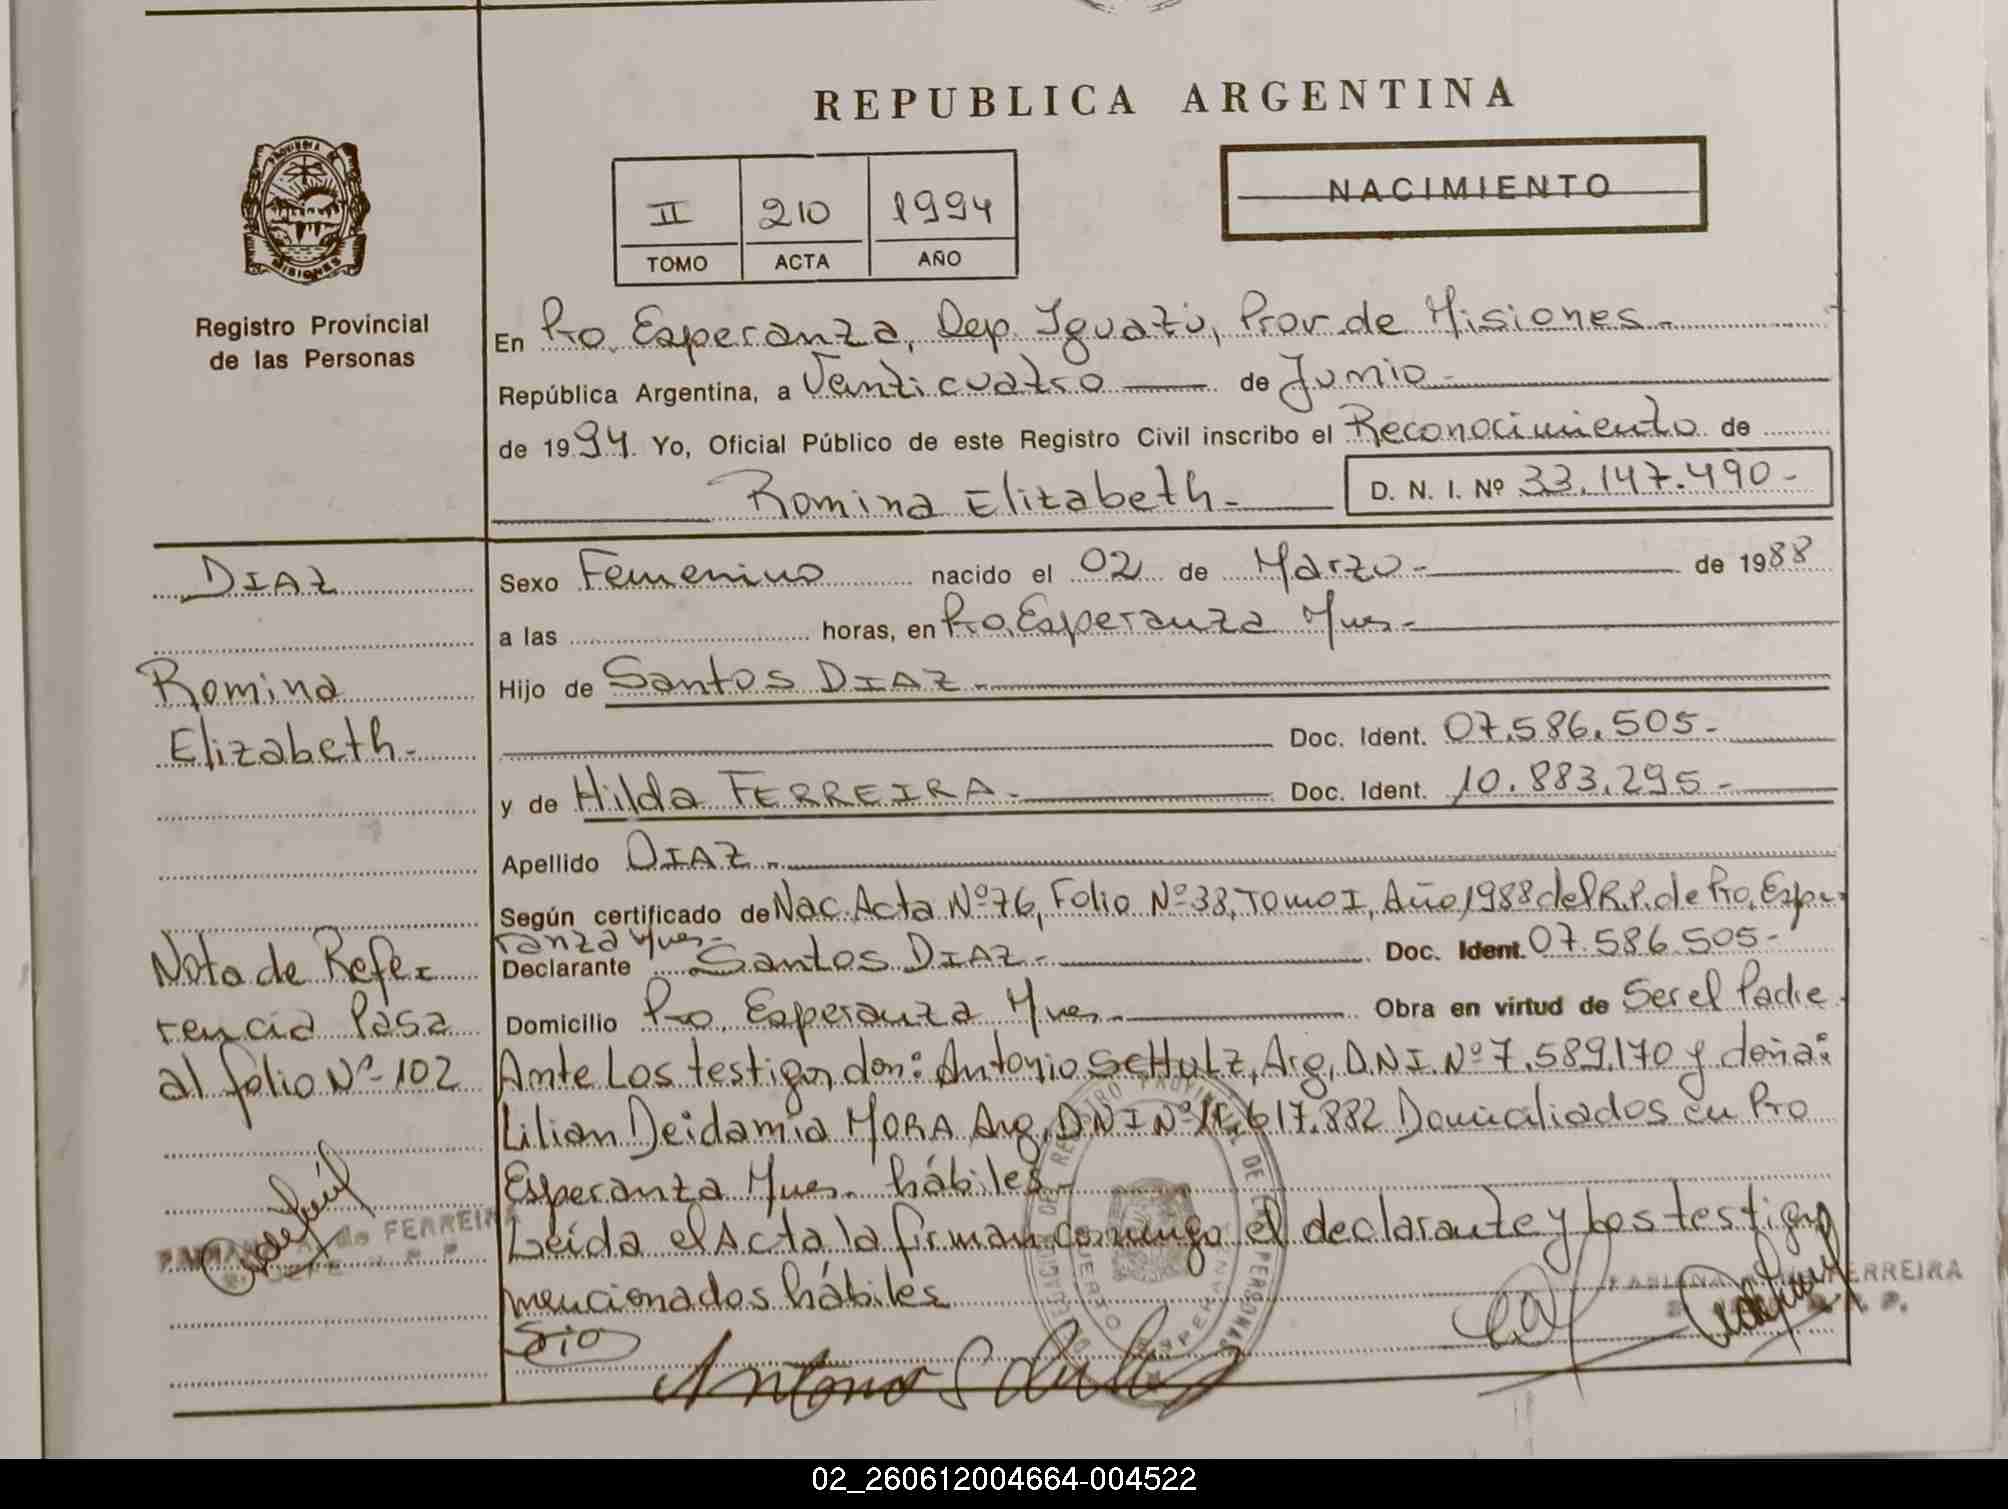 REPUBLICA ARGENTINA
NACIMIENTO
II 210 1994
TOMO ACTA AÑO
PROVINCIA DE
MISIONES
Registro Provincial
de las Personas
En Pto. Esperanza, Dep. Iguazú, Prov. de Misiones.-
República Argentina, a Venticuatro de Junio.-
de 1994. Yo, Oficial Público de este Registro Civil inscribo el Reconocimiento de
Romina Elizabeth.- D. N. I. Nº 33.147.490-
DIAZ
Romina
Elizabeth.-
Nota de Refe-
rencia Pasa
al folio Nº 102
Sexo Femenino nacido el 02 de Marzo.- de 1988
a las horas, en Pto. Esperanza Mnes.-
Hijo de Santos DIAZ.-
Doc. Ident. 07.586.505-
y de Hilda FERREIRA.- Doc. Ident. 10.883.295-
Apellido DIAZ.-
Según certificado de Nac. Acta Nº 76, Folio Nº 38, Tomo I, Año 1988 del R.P. de Pto. Espe-
ranza Mnes.-
Declarante Santos DIAZ.- Doc. Ident. 07.586.505-
Domicilio Pto. Esperanza Mnes.- Obra en virtud de Ser el Padre
Ante Los testigos, don: Antonio SCHULZ, Arg, D.N.I. Nº 7.589.170 y doña:
Lilian Deidamia MORA Arg, DNI Nº 617.882 Domiciliados en Pto
Esperanza Mnes. hábiles.-
Leida el Acta la firman conmigo el declarante y Los testigos
mencionados hábiles
Antonio Schulz
de FERREIRA
FERREIRA
02_260612004664-004522